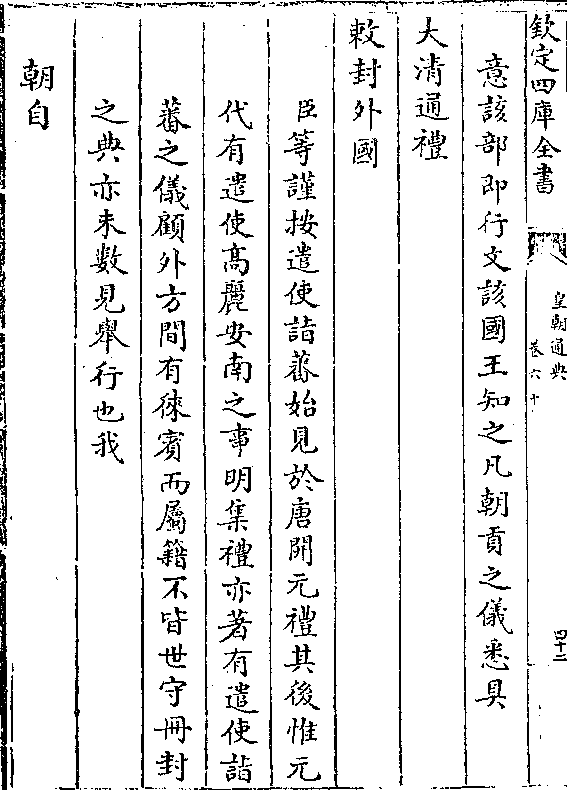 欽定四庫全書
皇朝通典
卷六十
四十二
意該部即行文該國王知之凡朝貢之儀悉具
大清通禮
敕封外國
臣等謹按遣使詣蕃始見於唐開元禮其後惟元
代有遣使高麗安南之事明集禮亦著有遣使詣
蕃之儀顧外方間有徠賓而屬籍不皆世守冊封
之典亦未數見舉行也我
朝自